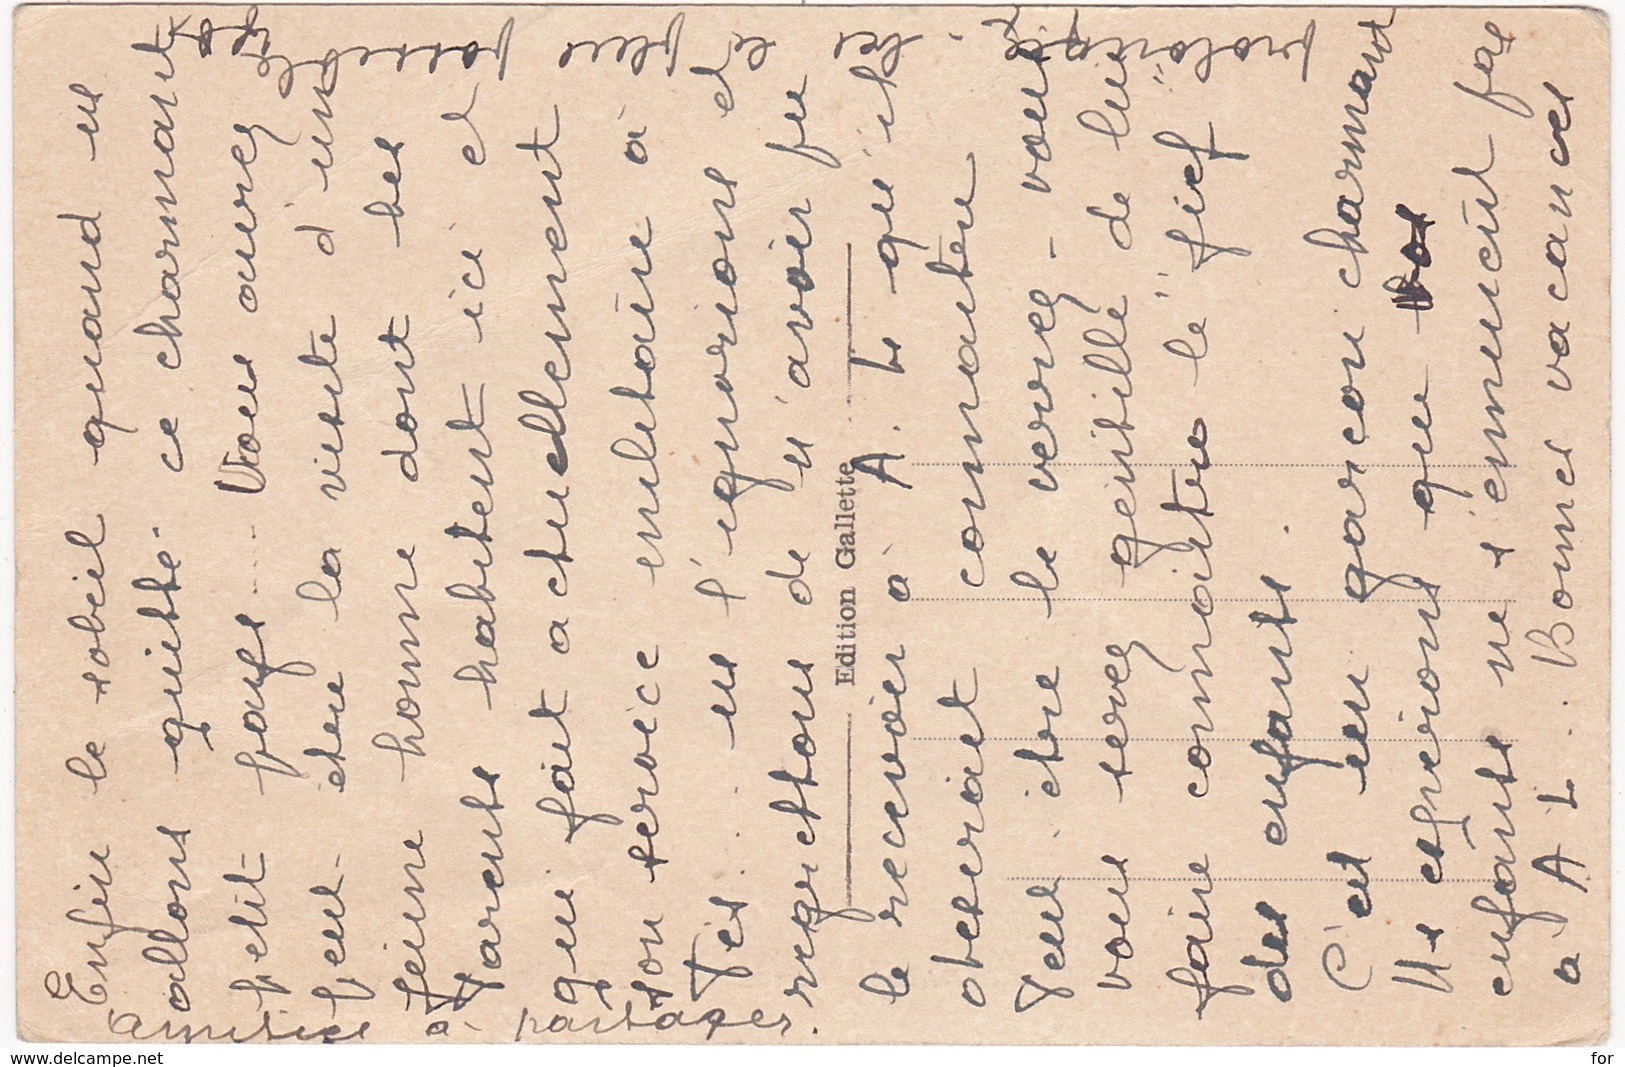 Enfin le soleil quand us
allons quitté. ce charmant
petit pays.... Vous aurez
peut-être la visite d'un
jeune homme dont les
Parents habitent ici et
qui fait actuellement
son service militaire à
Tes. us l'ignorions et
regrettons de n'avoir pu
le recevoir à A. L qu'il
desiriait connaitre
Peut être le verrez-vous
vous serez gentille de lui
faire connaitre le "fief"
des enfants.
C'est un garçon charmant
Us esperions que Vos
enfants ne s'ennuient pas
à A L. Bonnes vacances
votre
à partager.
Edition Gallette
www.delcampe.net
for